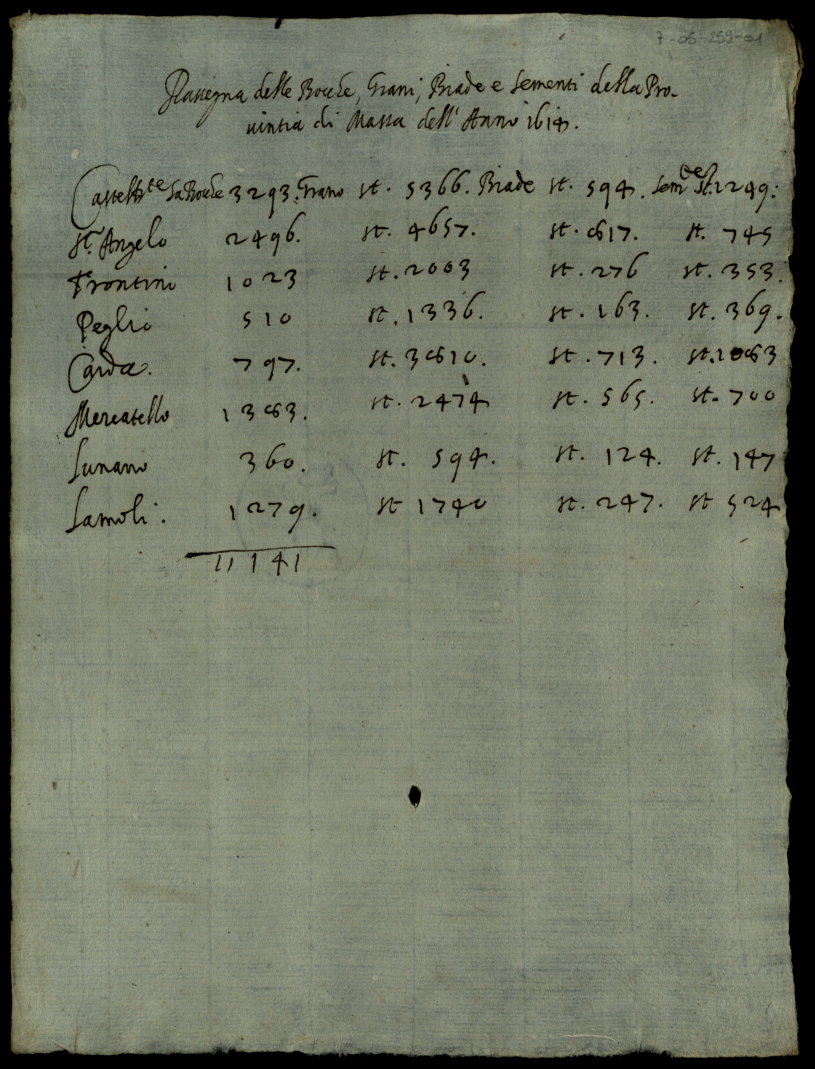 7-05-259-01
Rassegna delle Bocche, Grani, Biade e Sementi della Pro-
uintia di Massa dell' Anno 1614.
Casteldte Sa Bocche 3293. Grano st. 5366. Biade st. 594. Semte st. 1249:
St. Angelo 2496. st. 4657. st. 817. st. 745
Frontino 1023 st. 2003 st. 276 st. 353
Peglio 510 st. 1336. st. 163. st. 369.
Carda. 797. st. 3810. st. 713. st. 1083
Mercatello 1383. st. 2474 st. 565. st. 700
Lunano 360. st. 594. st. 124. st. 147
Lamoli. 1279. st 1740 st. 247. st 524
11141